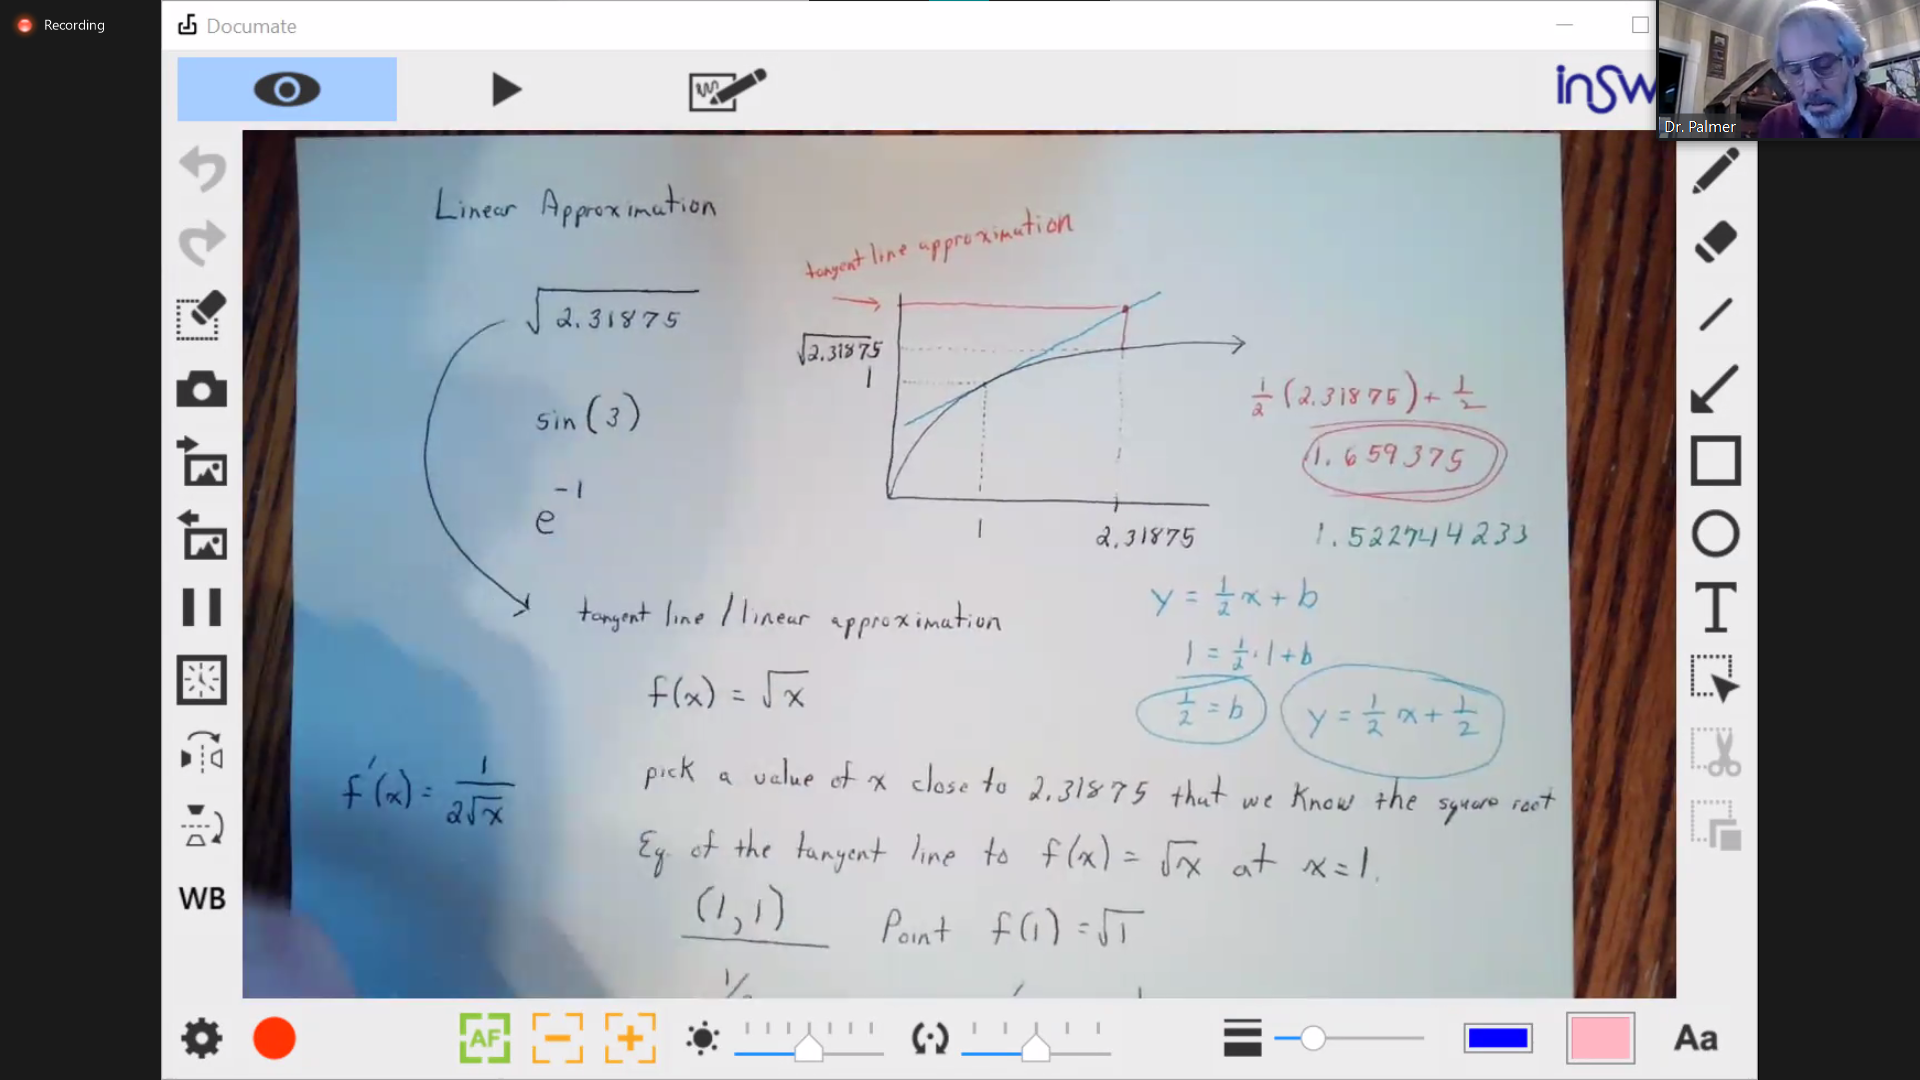 Recording
Documate
inSw
Dr. Palmer
Linear Approximation
tangent line approximation
√2.31875
√2.31875
1
sin(3)
1/2 (2.31875) + 1/2
1.659375
e^-1
1
2.31875
1.522744233
y = 1/2 x + b
tangent line / linear approximation
1 = 1/2 · 1 + b
f(x) = √x
1/2 = b
y = 1/2 x + 1/2
f'(x) = 1/2√x
pick a value of x close to 2.31875 that we know the square root
Eq. of the tangent line to f(x) = √x at x = 1.
(1,1)
Point f(1) = √1
WB
T
AF
Aa